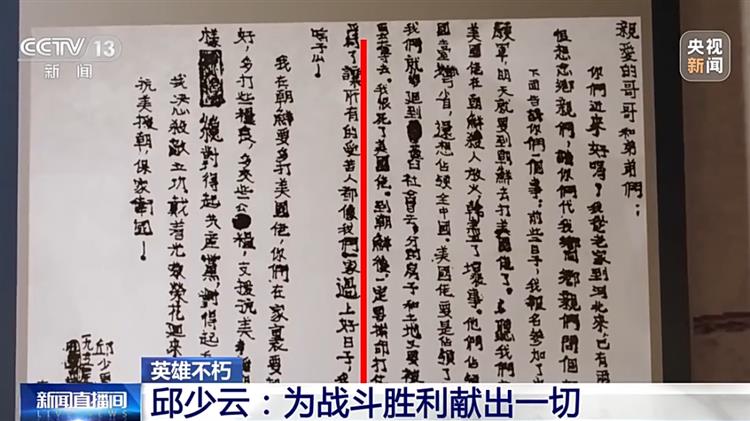 CCTV 13
新闻
央视
新闻
親愛的哥哥和弟弟們：
你們近來好嗎？我從老家到河北來已有兩
想念鄉親們，請你們代我向鄉親們問個
下面告訴你們一個事：前些日子，我報名參加了
願軍，明天就要到朝鮮去打美國佬了。聽我們
美國佬在朝鮮殺人放火 壞事。他們佔領
國臺灣省，還想佔領全中國。美國佬要是佔領了
我們就 退到 社會 去，分的房子和土地又要被
去。我恨死了美國佬。到朝鮮後一定要 命打
為了讓所有的受苦人都像我們一家過上好日子 我
啥子么！
我在朝鮮要多打美國佬，你們在家裏要
好，多打些糧食，多交些公糧，支援抗美
樣 纔對得起共產黨，對得起
我決心殺敵立功戴着光榮花回來
抗美援朝，保家衛國！
邱少
一九五
英雄不朽
新闻直播间
邱少云：为战斗胜利献出一切